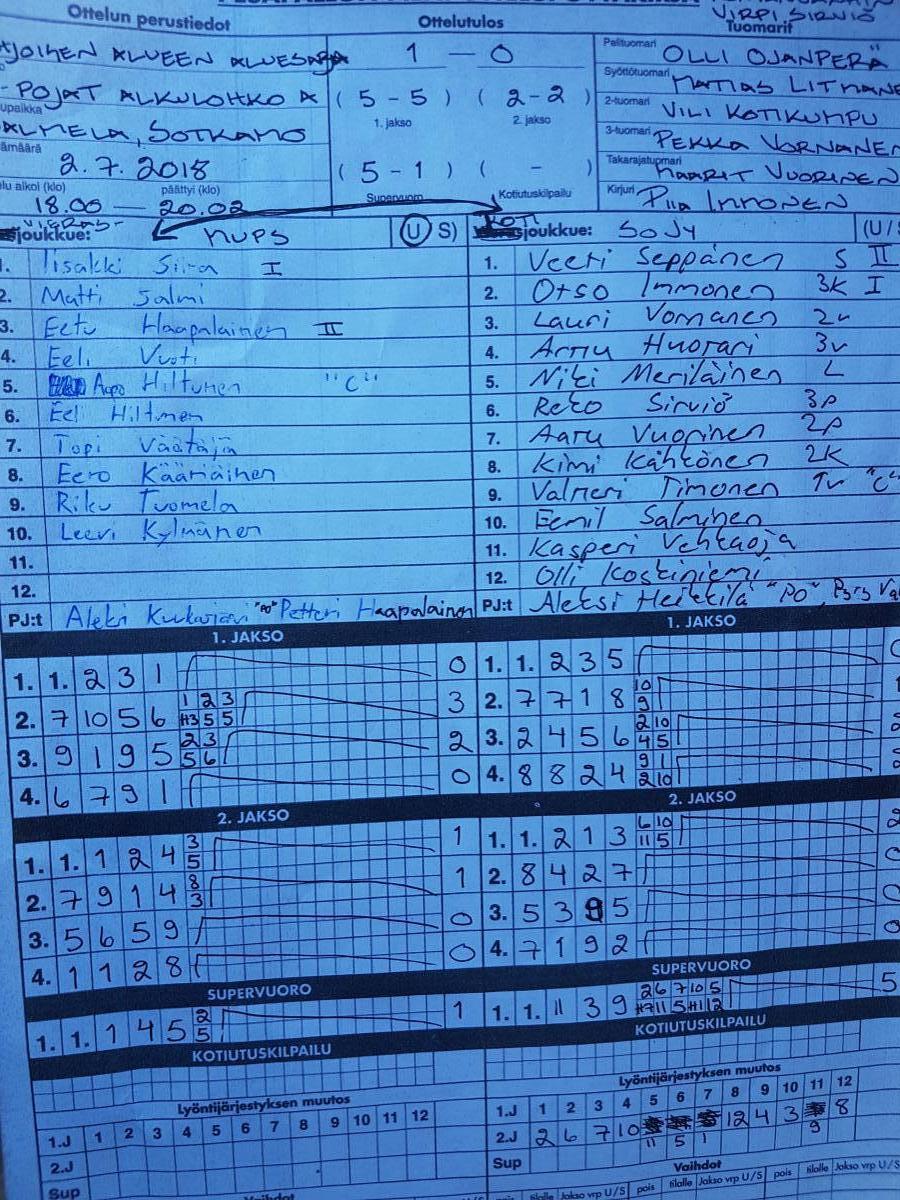 VIRPI SIRVIÖ
Ottelun perustiedot
Ottelutulos
Tuomarit
ALUEEN ALUESARJA
1 — 0
Pelituomari OLLI OJANPERÄ
-POJAT ALKULOHKO A
( 5 - 5 ) ( 2 - 2 )
Syöttötuomari MATIAS
1. jakso 2. jakso
2-tuomari VILI KOTIKUMPU
SOTKAMO
3-tuomari PEKKA VORNANEN
2.7.2018
( 5 - 1 ) ( - )
Takarajatuomari MAARIT VUORINEN
Supervuoro Kotiutuskilpailu
alkoi (klo) päättyi (klo)
18.00 — 20.02
Kirjuri Piia IMMONEN
VIERAS-
joukkue: MUPS (U S)
KOTI
joukkue: SoJy (U/S
1. Iisakki Siira I
2. Matti Salmi
3. Eetu Haapalainen II
4. Eeli Vuoti
5. Aapo Hiltunen "C"
6. Eeli Hiltunen
7. Topi Väätäjä
8. Eero Kääriäinen
9. Riku Tuomela
10. Leevi Kylmänen
11.
12.
PJ:t Petteri Haapalainen
1. Veeti Seppänen S II
2. Otso Immonen 3K I
3. Lauri Vornanen 2v
4. Arttu Huotari 3v
5. Niki Meriläinen L
6. Reko Sirviö 3p
7. Aaru Vuorinen 2p
8. Kimi Kähkönen 2K
9. Valtteri Timonen "C"
10. Eemil Salminen
11. Kasperi Vehtaoja
12. Olli Koskiniemi
PJ:t Aleksi Heikkilä "PO",
1. JAKSO
1. 1. 2 3 1 0
2. 7 10 5 6 3
3. 9 1 9 5 2
4. 6 7 9 1 0
2. JAKSO
1. 1. 1 2 4 3 5 1
2. 7 9 1 4 8 3 1
3. 5 6 5 9 0
4. 1 1 2 8 0
SUPERVUORO
1. 1. 1 4 5 2 5 1
KOTIUTUSKILPAILU
Lyöntijärjestyksen muutos
1.J 1 2 3 4 5 6 7 8 9 10 11 12
2.J
Sup
Vaihdot
1. JAKSO
1. 1. 2 3 5
2. 7 7 1 8 10 9
3. 2 4 5 6 2 10 4 5
4. 8 8 2 4 9 1 2 10
2. JAKSO
1. 1. 2 1 3 6 10 11 5 2
2. 8 4 2 7
3. 5 3 9 5
4. 7 1 9 2
SUPERVUORO
1. 1. 11 3 9 5
KOTIUTUSKILPAILU
Lyöntijärjestyksen muutos
1.J 1 2 3 4 5 6 7 8 9 10 11 12
2.J 2 6 7 10 11 5 1 12 4 3 9 8
Sup
Vaihdot
pois tilalle Jakso vrp U/S pois tilalle Jakso vrp U/S